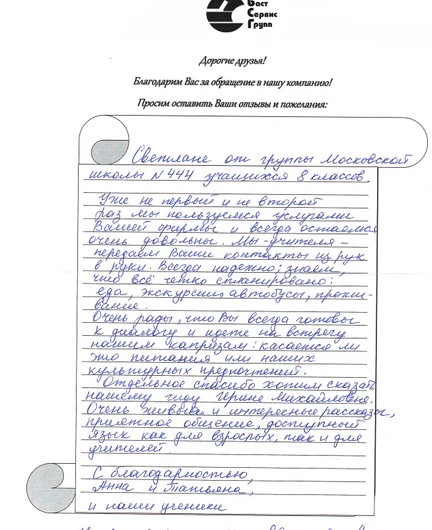 Васт
Сервис
Групп
Дорогие друзья!
Благодарим Вас за обращение в нашу компанию!
Просим оставить Ваши отзывы и пожелания:
Светлане от группы Московской
школы N 444 учащихся 8 классов
Уже не первый и не второй
раз мы пользуемся услугами
Вашей фирмы и всегда остаемся
очень довольны. Мы - учителя -
передаем Ваши контакты из рук
в руки. Всегда надежно; знаем,
что всё четко спланировано:
еда, экскурсии, автобусы, прожи-
вание.
Очень рады, что Вы всегда готовы
к диалогу и идете на встречу
нашим капризам: касаемся ли
это питания или наших
культурных предпочтений.
Отдельное спасибо хотим сказать
нашему гиду Ирине Михайловне.
Очень живые и интересные рассказы,
приятное общение, доступный
язык как для взрослых, так и для
учителей
С благодарностью,
Анна и Татьяна,
и наши ученики